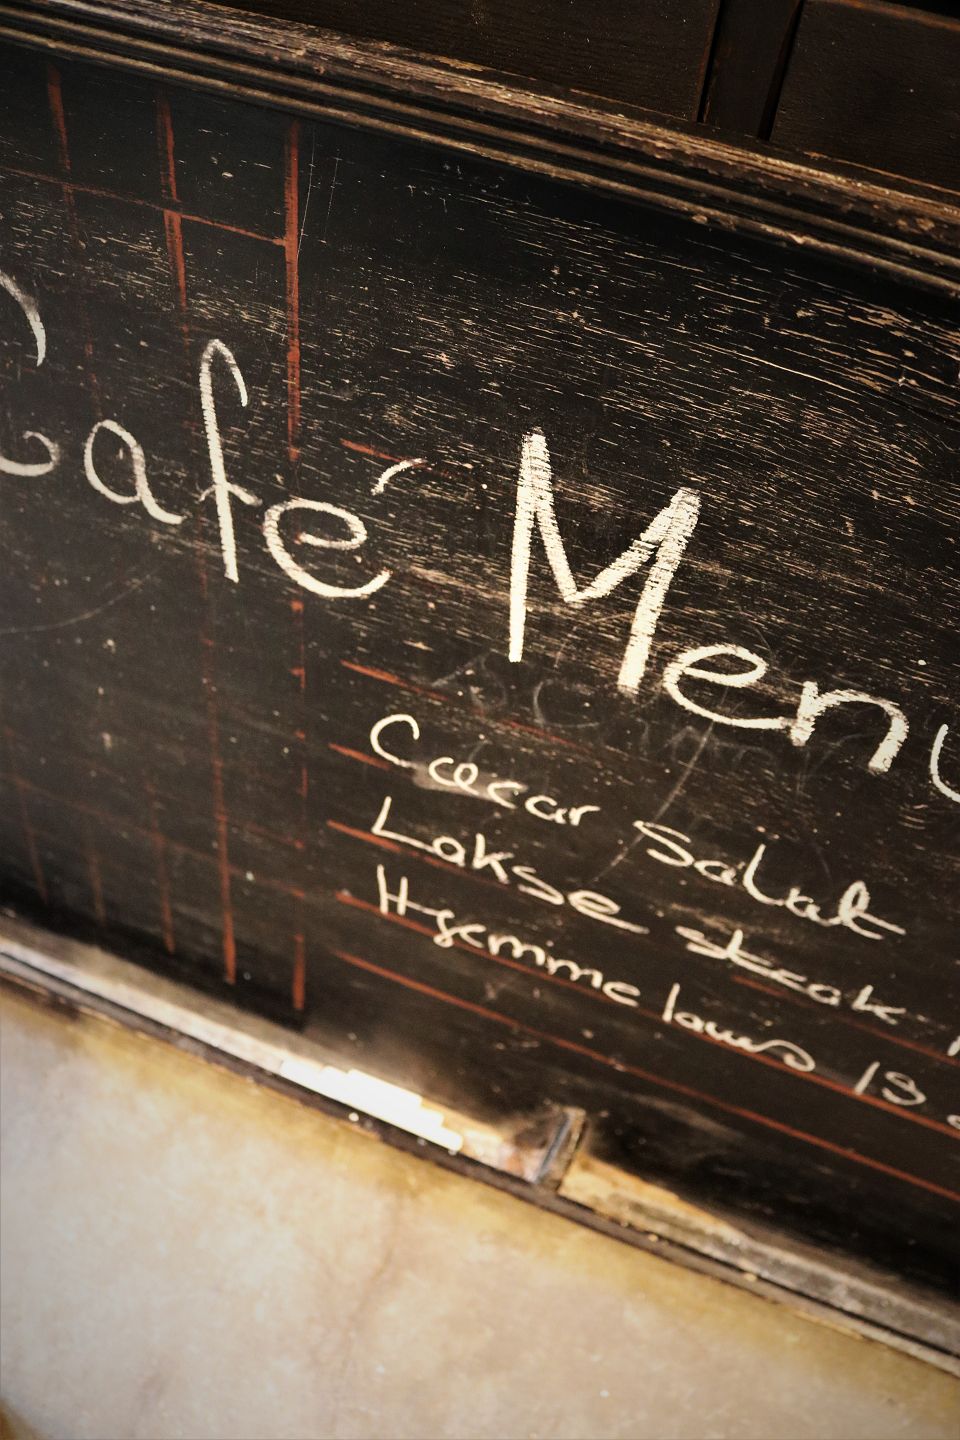 Café Menu
Cæcar Salat
Lakse steak
Hjemme laws 19